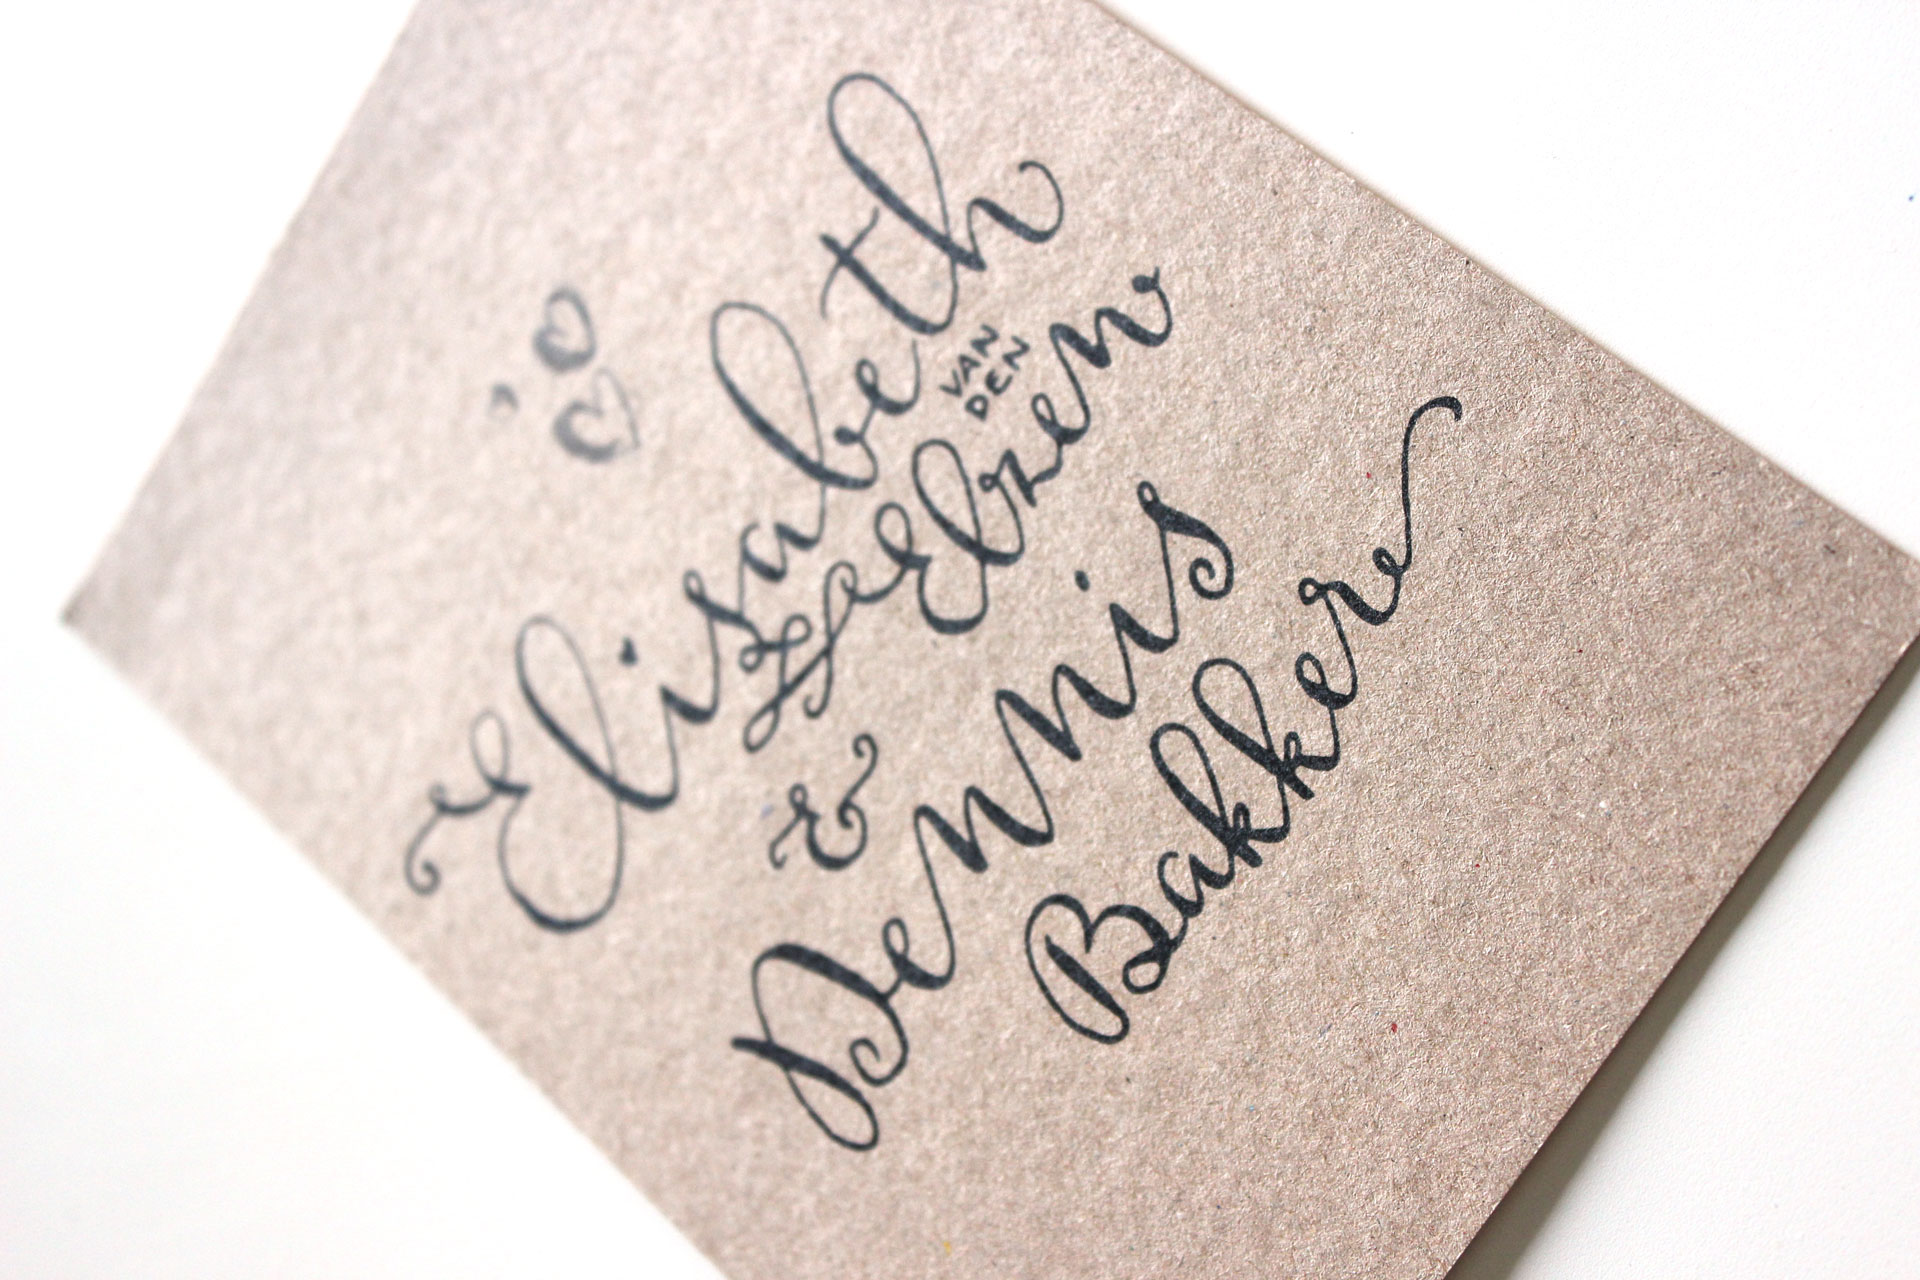 Elisabeth
VAN
DEN
Elzen
&
Dennis
Bakker